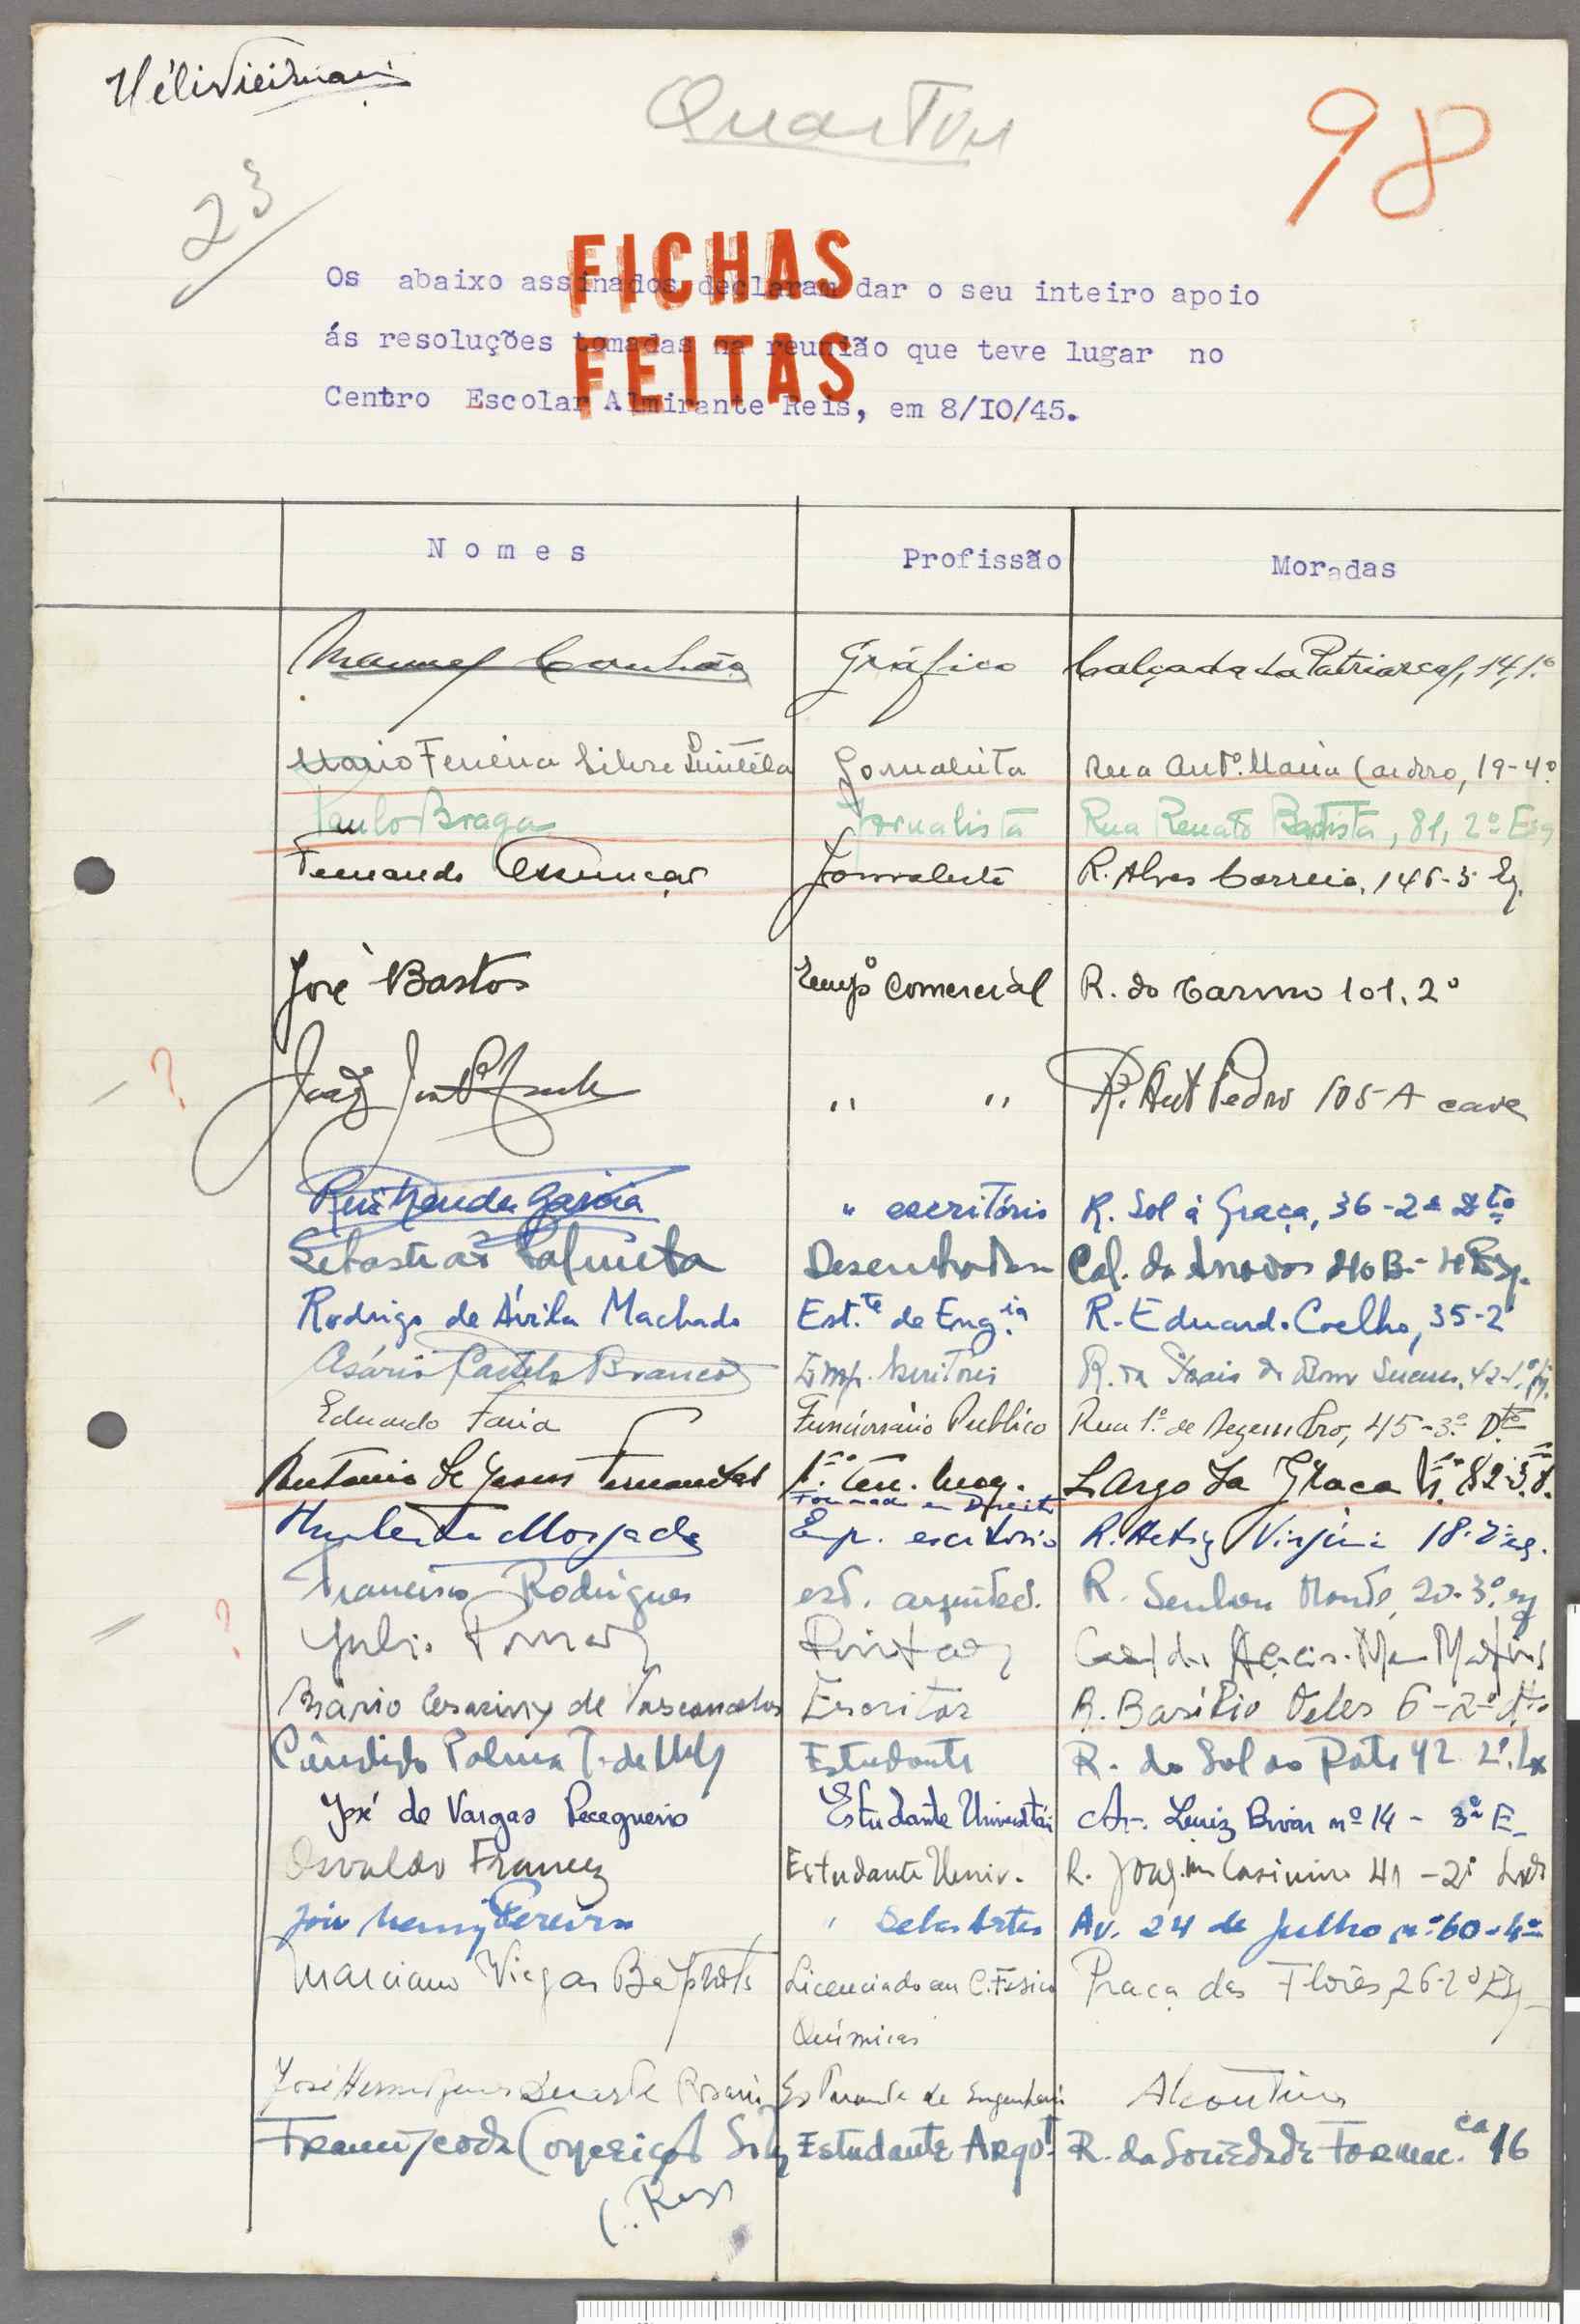 98
23
FICHAS
FEITAS
Os abaixo assinados declaram dar o seu inteiro apoio
ás resoluções tomadas na reunião que teve lugar no
Centro Escolar Almirante Reis, em 8/IO/45.
Nomes Profissão Moradas
Gráfico Calçada da Patriarcal, 14, 1.º
Mario Ferreira Jornalista Rua Antº. Maria Cardoso, 19-4º.
Paulo Braga Jornalista Rua Renato Baptista, 81, 2º Esq
Fernando Assunção Jornalista R. Alves Correia, 146-3º Eq.
José Bastos Empº Comercial R. do Carmo 101, 2º
? " " R. Ant Pedro 105-A cave
Rui Mendes Garcia " escritório R. Sol á Graça, 36-2º Dto
Sebastião Desenhador Cal. da
Rodrigo de Ávila Machado Est.te de Eng.ia R. Eduardo Coelho, 35-2º
Castelo Branco Emp. Escritório R. da Praia do Bom Sucesso, 42-1º
Eduardo Faria Funcionário Publico Rua 1º. de Dezembro, 45-3º. D.to
Antonio de Jesus Fernandes 1º. Ten. Largo da Graça 82-3º.
Formado em Direito
Emp. escritório R. Actriz Virginia 18-2º esq.
Francisco Rodrigues est. arquitect. R. Senhora Monte, 20-3º. esq
? Julio Pomar Pintor
Mário Cesariny de Vasconcelos Escritor R. Basílio Teles 6-2º dto
Cândido Palma T. de Estudante R. do Sol ao Rato 42 2º. Lx
José de Vargas Pecegueiro Estudante Av. Luiz Bivar nº 14 - 3º E.
Osvaldo Estudante Univ. R. Joaq.im Casimiro 41-2º
Pereira " Belas Artes Av. 24 de Julho nº 60-4º
Marciano Viegas Baptista Licenciado em C. Fisico Praça das Flores, 26-2º Eq
Químicas
José Duarte Rosario Estudante de Engenharia Alcoutim
Francisco da Conceição Silva Estudante Arqt. R. da Sociedade Farmac.ca 16